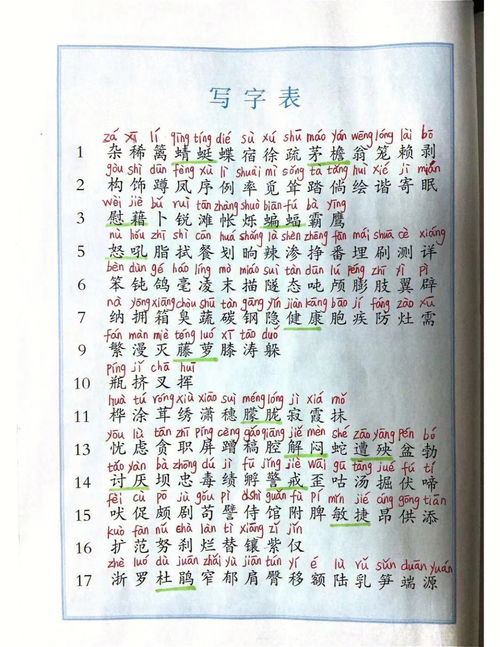 写字表
zá xī lí qīng tíng dié sù xú shū máo yán wēng lóng lài bō
1 杂稀篱蜻蜓蝶宿徐疏茅檐翁笼赖剥
gòu shì dūn fèng xù lì shuài mì sǒng tà tǎng huì xié jì mián
2 构饰蹲凤序例率觅耸踏倘绘谐寄眠
wèi jiè bǔ ruì tān zhàng shuò biān fú bà yīng
3 慰藉卜锐滩帐烁蝙蝠霸鹰
nù hǒu zhī shì cān huá shǎng là shèn zhēng fān mái shuā cè xiáng
5 怒吼脂拭餐划晌辣渗挣番埋刷测详
bèn dùn gē háo líng mò miáo suì tàn dūn lú péng zhī yì pì
6 笨钝鸽毫凌末描隧态吨颅膨肢翼辟
nà yōng xiāng chòu shū tàn gāng yǐn jiàn kāng bāo jí fáng zào xū
7 纳拥箱臭蔬碳钢隐健康胞疾防灶需
fán màn miè téng luó xī tāo duǒ
9 繁漫灭藤萝膝涛躲
píng jǐ chā huī
10 瓶挤叉挥
huà tú róng xiù xiāo suì méng lóng jì xiá mǒ
11 桦涂茸绣潇穗朦胧寂霞抹
yōu lǜ tān zhí píng cèng gǎo qiāng jiě mèn shé zāo yāng pén bó
13 忧虑贪职屏蹭稿腔解闷蛇遭殃盆勃
tǎo yàn bà zhōng dú jì fū jǐng jiè wāi gū tāng jué fú tí
14 讨厌坝忠毒绩孵警戒歪咕汤掘伏啼
fèi cù pō jù gǒu pì shì guǎn fù pí mǐn jié áng gōng tiān
15 吠促颇剧苟譬侍馆附脾敏捷昂供添
kuò fàn nǔ chà làn tì xiāng zǐ jǐn
16 扩范努刹烂替镶紫仅
zhè luó dù juān zhǎi yù jiān tún yí é lù rǔ sǔn duān yuán
17 浙罗杜鹃窄郁肩臀移额陆乳笋端源